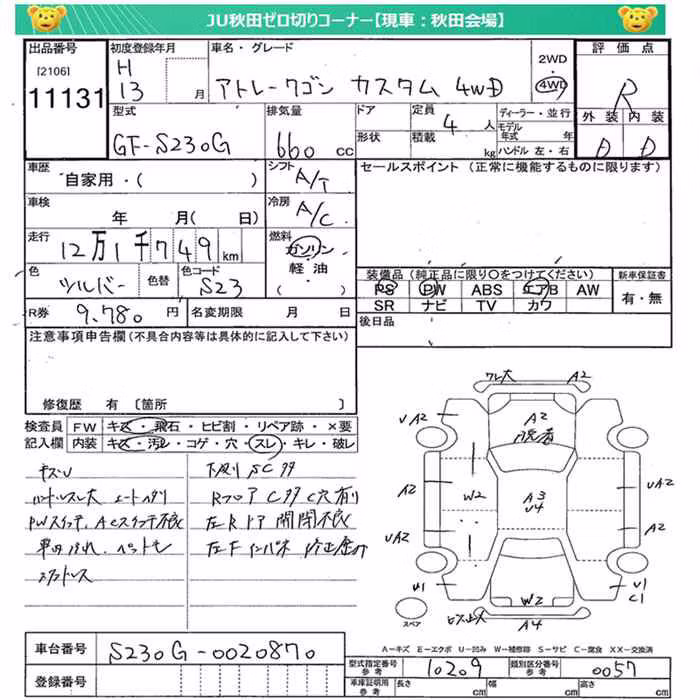 JU秋田ゼロ切りコーナー【現車：秋田会場】
出品番号
[2106]
11131
初度登録年月
H
13 月
車名・グレード
アトレーワゴン カスタム 4WD
2WD
・
4WD
評価点
R
外装 内装
D D
型式
GF-S230G
排気量
660 cc
ドア
形状
定員
4 人
積載
kg
ディーラー・並行
モデル年式 年
ハンドル 左・右
車歴
自家用・( )
シフト
A/T
セールスポイント (正常に機能するものに限ります)
車検
年 月( 日)
冷房
A/C
走行
12万1千749 km
燃料
ガソリン
軽油
( )
色
シルバー
色替
色コード
S23
装備品(純正品に限り○をつけてください)
PS PW ABS エアB AW
SR ナビ TV カワ
新車保証書
有・無
R券 9,780 円
名変期限 月 日
後日品
注意事項申告欄(不具合内容等は具体的に記入して下さい)
修復歴 有 〔箇所 〕
検査員
記入欄
FW キズ・飛石・ヒビ割・リペア跡・×要
内装 キズ・汚レ・コゲ・穴・スレ・キレ・破レ
キズ・U
ハンドルスレ大
PWスイッチ、ACスイッチ不良
下廻りSC
RフロアC C穴有り
左Rドア開閉不良
左Fインパネ
ワレ大 A2
UA2 A2 UA2
脱着
A2 W2 A3 U4 UA2
UA2 A2
U1 W2 U1 C1
A4
スペア
A－キズ E－エクボ U－凹み W－補修跡 S－サビ C－腐食 XX－交換済
車台番号 S230G-0020870
登録番号
型式指定番号 参考 10209
類別区分番号 参考 0057
車庫証明用 参考 長さ cm 幅 cm 高さ cm